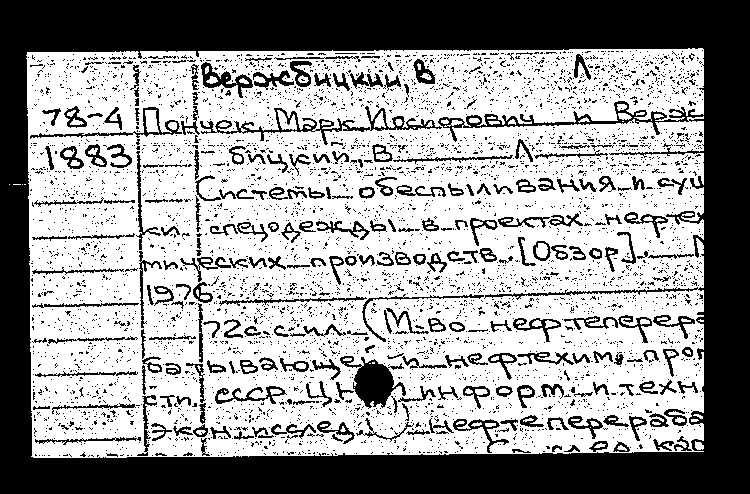 Вержбицкий, В Л
78-4 Пончек, Марк Иосифович и Верж
1883 бицкий, В Л
Системы обеспыливания и суш
ки спецодежды в проектах нефтех
мических производств. [Обзор].
1976
72 с. с ил. (М-во нефтеперера
батывающей и нефтехим. пром
сти СССР. ЦН информ. и техн
экон. исслед. Нефтеперераба